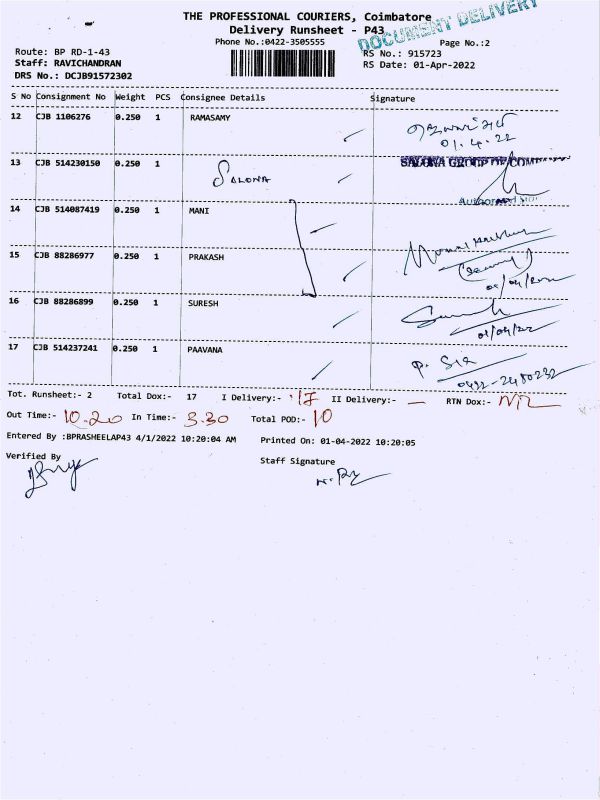 THE PROFESSIONAL COURIERS, Coimbatore
Delivery Runsheet - P43
DOCUMENT DELIVERY
Phone No.:0422-3505555
Page No.:2
Route: BP RD-1-43
RS No.: 915723
Staff: RAVICHANDRAN
RS Date: 01-Apr-2022
DRS No.: DCJB91572302
S No Consignment No Weight PCS Consignee Details Signature
12 CJB 1106276 0.250 1 RAMASAMY
01.4.22
13 CJB 514230150 0.250 1 SALONA
SALONA GROUP OF
14 CJB 514087419 0.250 1 MANI
15 CJB 88286977 0.250 1 PRAKASH
16 CJB 88286899 0.250 1 SURESH
01/04/22
17 CJB 514237241 0.250 1 PAAVANA
0422-2480232
Tot. Runsheet:- 2 Total Dox:- 17 I Delivery:- 17 II Delivery:- — RTN Dox:- NIL
Out Time:- 10.20 In Time:- 3.30 Total POD:- 10
Entered By :BPRASHEELAP43 4/1/2022 10:20:04 AM Printed On: 01-04-2022 10:20:05
Verified By
Staff Signature